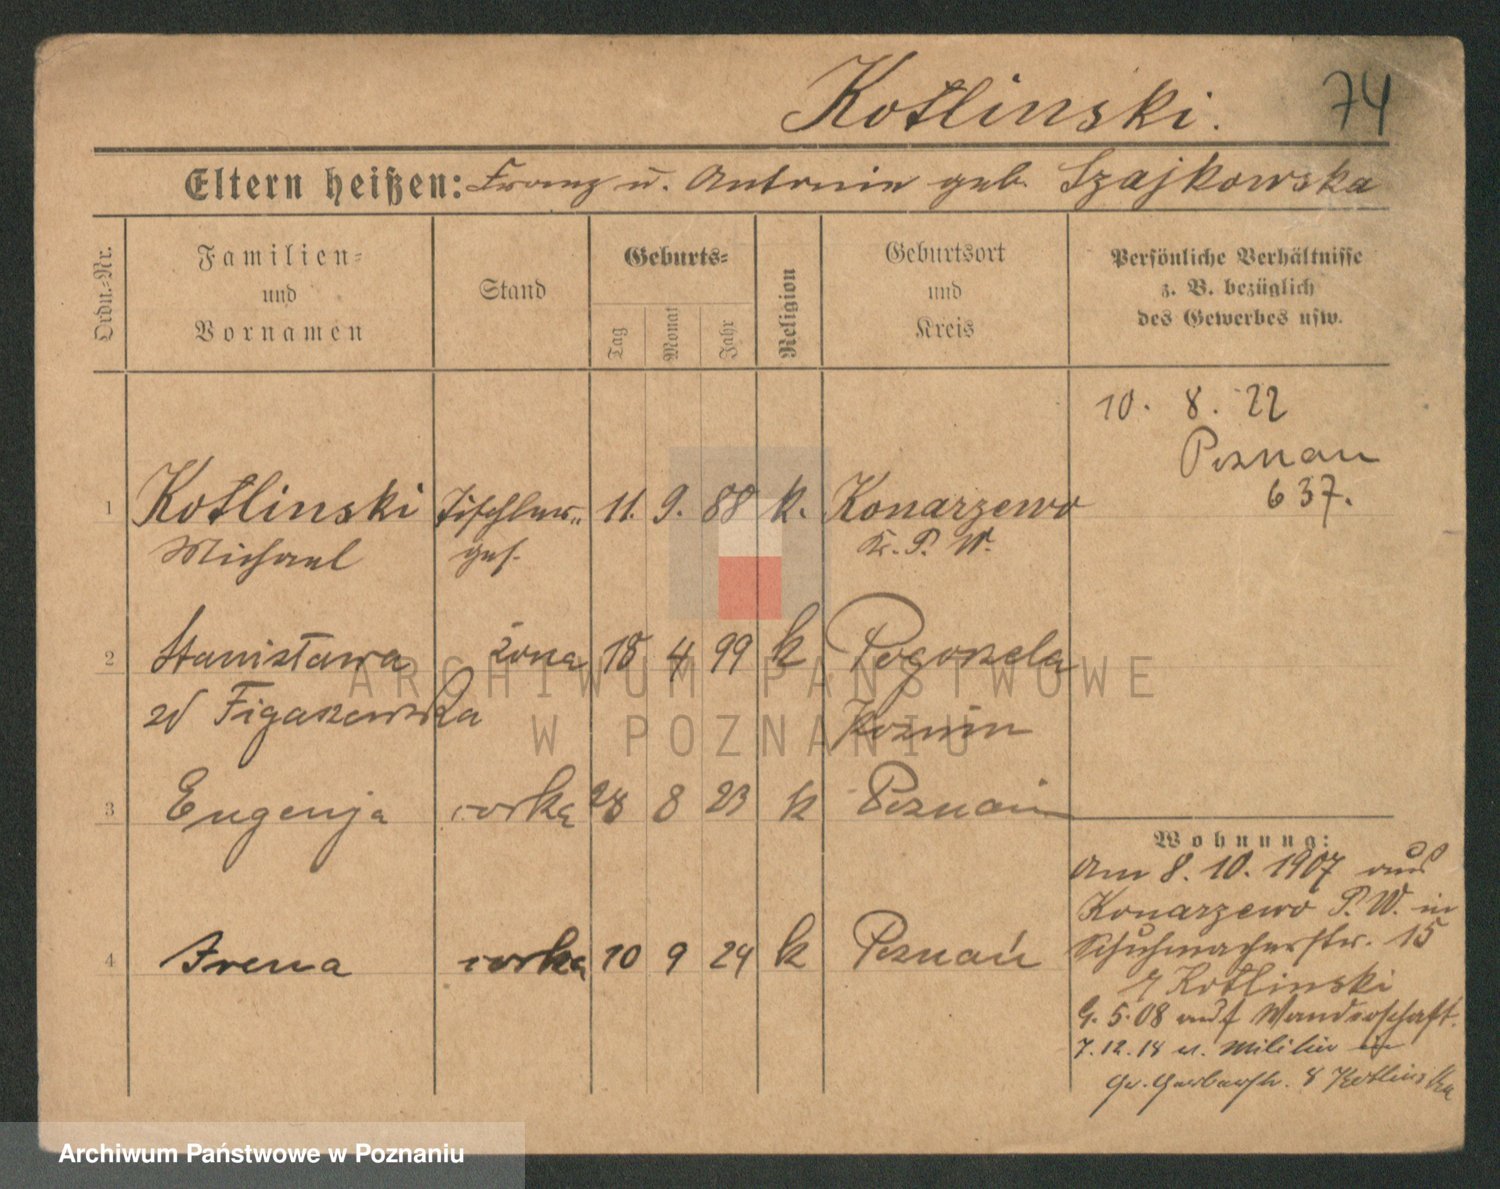 Kotlinski. 74
Eltern heißen: Franz u. Antonie geb. Szajkowska
Ordn.-Nr.
Familien-
und
Vornamen
Stand
Geburts-
Tag
Monat
Jahr
Religion
Geburtsort
und
Kreis
Persönliche Verhältnisse
z. B. bezüglich
des Gewerbes usw.
10. 8. 22
Poznań
637.
1 Kotlinski Tischler- 11. 9. 88 k. Konarzewo
Michael ges. Kr. P. W.
2 Stanisława żona 18 4 99 k Pogorzela
zd Figaszewska Koźmin
3 Eugenja corka 28 8 23 k Poznań
4 Irena corka 10 9 24 k Poznań
Wohnung:
Am 8. 10. 1907 aus
Konarzewo P. W. in
Schuhmacherstr. 15
Kotlinski
5. 08 auf Wanderschaft.
7. 12. 18 v. Militär in
Gr. Gerberstr. 8 Kotlinska
ARCHIWUM PAŃSTWOWE
W POZNANIU
Archiwum Państwowe w Poznaniu